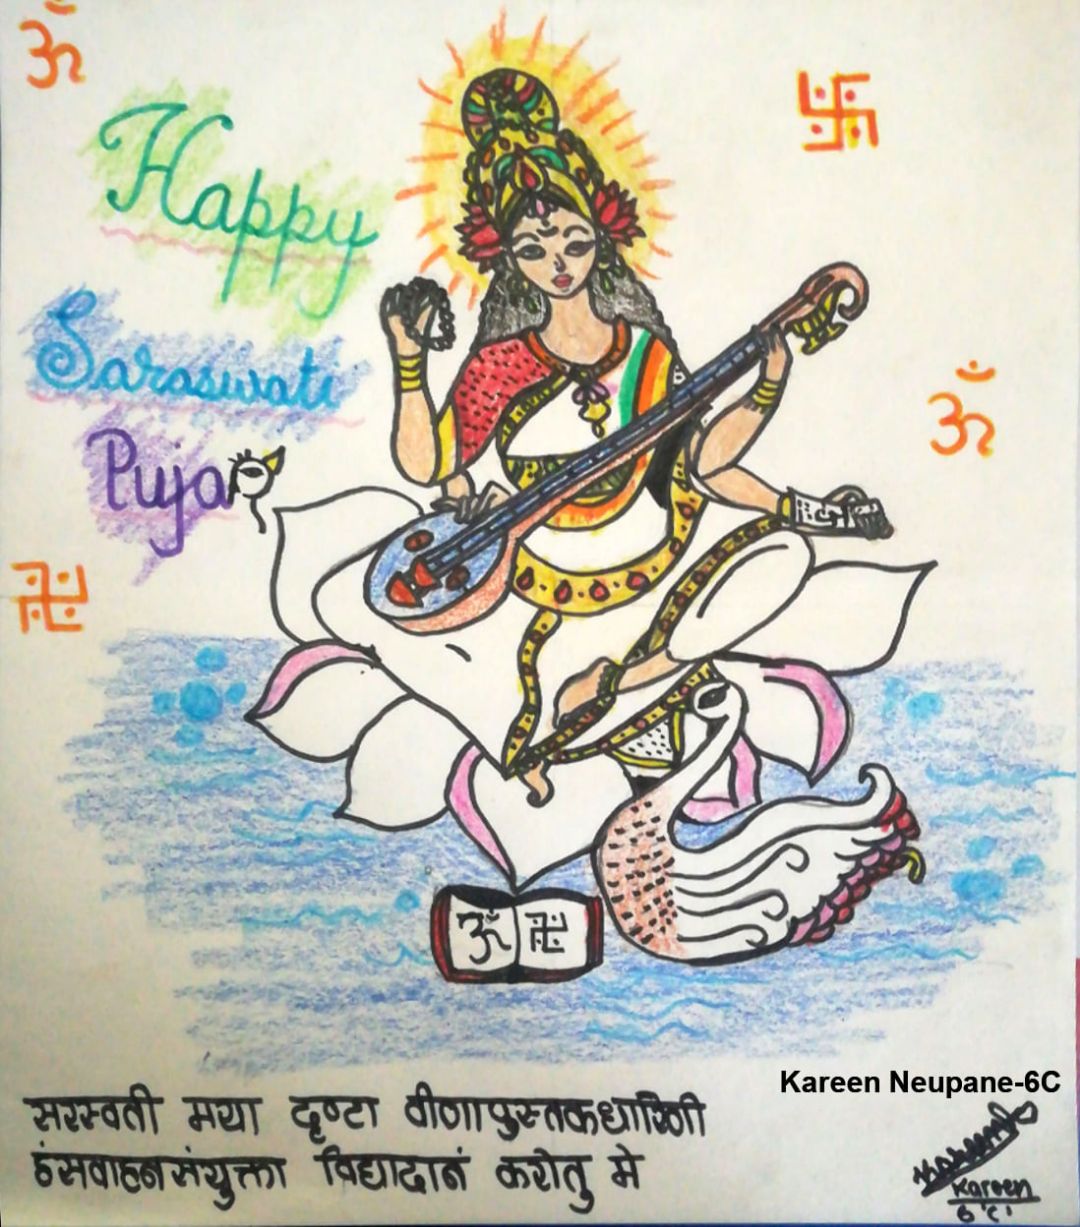 ॐ
Happy
Saraswati
Puja
ॐ
ॐ
Kareen Neupane-6C
सरस्वती मया दृष्टा वीणापुस्तकधारिणी
हंसवाहनसंयुक्ता विद्यादानं करोतु मे
Kareen
6 'C'